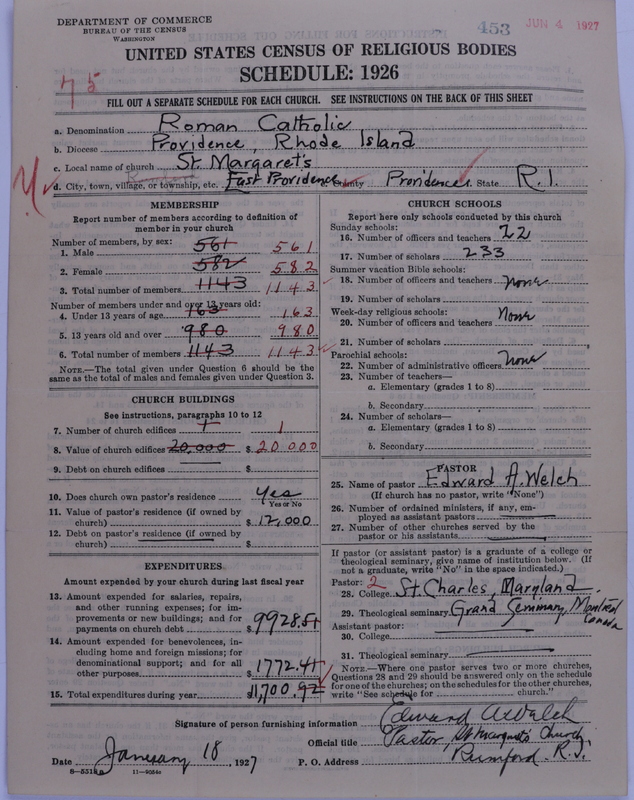 DEPARTMENT OF COMMERCE
BUREAU OF THE CENSUS
WASHINGTON
453
JUN 4 1927
UNITED STATES CENSUS OF RELIGIOUS BODIES
SCHEDULE: 1926
75
FILL OUT A SEPARATE SCHEDULE FOR EACH CHURCH. SEE INSTRUCTIONS ON THE BACK OF THIS SHEET
a. Denomination Roman Catholic
b. Diocese Providence, Rhode Island
c. Local name of church St. Margaret's
d. City, town, village, or township, etc. Rumford East Providence County Providence State R.I.
MEMBERSHIP
Report number of members according to definition of
member in your church
Number of members, by sex:
1. Male 561 561
2. Female 582 582
3. Total number of members 1143 1143
Number of members under and over 13 years old:
4. Under 13 years of age 163 163
5. 13 years old and over 980 980
6. Total number of members 1143 1143
NOTE.—The total given under Question 6 should be
same as the total of males and females given under Question 3.
CHURCH BUILDINGS
See instructions, paragraphs 10 to 12
7. Number of church edifices 1 1
8. Value of church edifices 20,000 $ 20 000
9. Debt on church edifices $
10. Does church own pastor's residence Yes
Yes or No
11. Value of pastor's residence (if owned by
church) $ 12,000
12. Debt on pastor's residence (if owned by
church) $
EXPENDITURES
Amount expended by your church during last fiscal year
13. Amount expended for salaries, repairs,
and other running expenses; for im-
provements or new buildings; and for
payments on church debt $ 9928.51
14. Amount expended for benevolences, in-
cluding home and foreign missions; for
denominational support; and for all
other purposes $ 1772.41
15. Total expenditures during year $ 11,700.92
CHURCH SCHOOLS
Report here only schools conducted by this church
Sunday schools:
16. Number of officers and teachers 22
17. Number of scholars 233
Summer vacation Bible schools:
18. Number of officers and teachers none
19. Number of scholars
Week-day religious schools:
20. Number of officers and teachers none
21. Number of scholars
Parochial schools:
22. Number of administrative officers none
23. Number of teachers—
a. Elementary (grades 1 to 8)
b. Secondary
24. Number of scholars—
a. Elementary (grades 1 to 8)
b. Secondary
PASTOR
25. Name of pastor Edward A. Welch
(If church has no pastor, write "None")
26. Number of ordained ministers, if any, em-
ployed as assistant pastors
27. Number of other churches served by the
pastor or his assistants
If pastor (or assistant pastor) is a graduate of a college or
theological seminary, give name of institution below. (If
not a graduate, write "No" in the space indicated.)
Pastor: 2
28. College St. Charles, Maryland
29. Theological seminary Grand Seminary, Montreal Canada
Assistant pastor:
30. College
31. Theological seminary
NOTE.—Where one pastor serves two or more churches,
Questions 28 and 29 should be answered only on the schedule
for one of the churches; on the schedules for the other churches,
write "See schedule for church."
Signature of person furnishing information Edward A Welch
Official title Pastor, St Margaret's Church
Date January 18, 1927 P. O. Address Rumford. R.I.
11—9084a